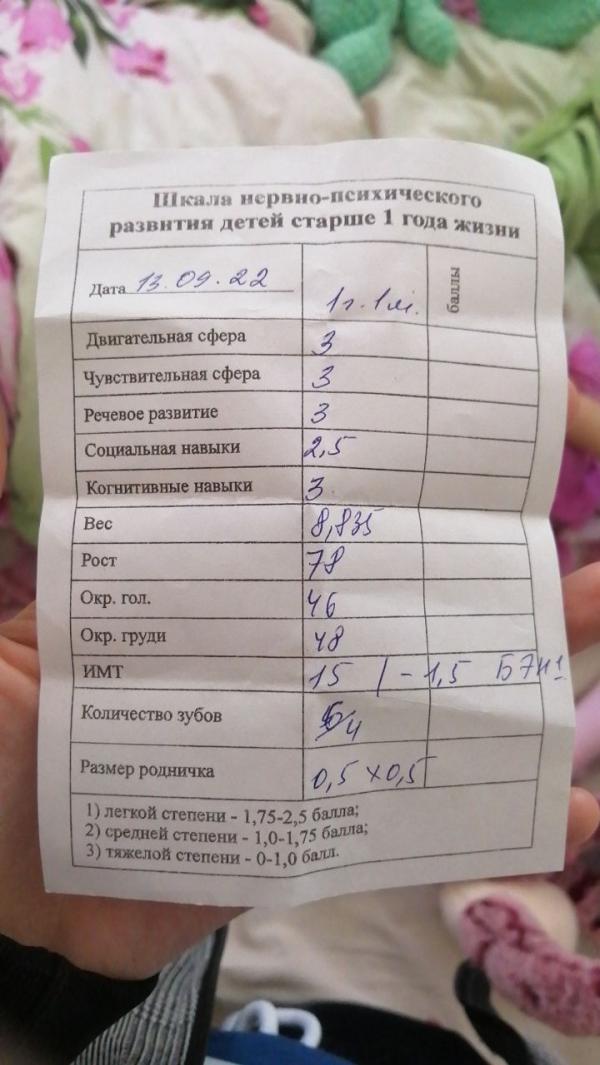 Шкала нервно-психического
развития детей старше 1 года жизни
Дата 13.09.22 1г.1м. баллы
Двигательная сфера 3
Чувствительная сфера 3
Речевое развитие 3
Социальная навыки 2,5
Когнитивные навыки 3
Вес 8,835
Рост 78
Окр. гол. 46
Окр. груди 48
ИМТ 15 / -1,5 БЭН1
Количество зубов /4
Размер родничка 0,5 х 0,5
1) легкой степени - 1,75-2,5 балла;
2) средней степени - 1,0-1,75 балла;
3) тяжелой степени - 0-1,0 балл.